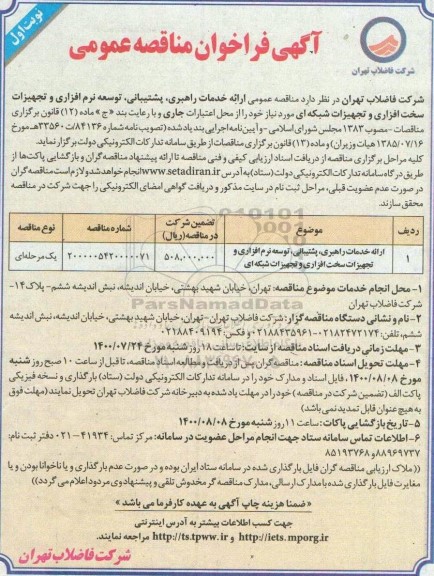 نوبت اول
آگهی فراخوان مناقصه عمومی
شرکت فاضلاب تهران
شرکت فاضلاب تهران در نظر دارد مناقصه عمومی ارائه خدمات راهبری، پشتیبانی، توسعه نرم افزاری و تجهیزات
سخت افزاری و تجهیزات شبکه ای مورد نیاز خود را از محل اعتبارات جاری و با رعایت بند «ج» ماده (۱۲) قانون برگزاری
مناقصات -مصوب ۱۳۸۳ مجلس شورای اسلامی- و آیین‌نامه اجرایی بند یادشده (تصویب نامه شماره ۸۴۱۳۶/ت۳۳۵۶۰هـ مورخ
۱۳۸۵/۰۷/۱۶ هیات وزیران) و ماده (۱۳) قانون برگزاری مناقصات از طریق سامانه تدارکات الکترونیکی دولت برگزار نماید.
کلیه مراحل برگزاری مناقصه از دریافت اسناد ارزیابی کیفی و فنی مناقصه تا ارائه پیشنهاد مناقصه‌گران و بازگشایی پاکت‌ها از
طریق درگاه سامانه تدارکات الکترونیکی دولت (ستاد) به آدرس www.setadiran.ir انجام خواهد شد و لازم است مناقصه گران
در صورت عدم عضویت قبلی، مراحل ثبت نام در سایت مذکور و دریافت گواهی امضای الکترونیکی را جهت شرکت در مناقصه
محقق سازند.
ردیف موضوع تضمین شرکت در مناقصه (ریال) شماره مناقصه نوع مناقصه
۱ ارائه خدمات راهبری، پشتیبانی، توسعه نرم افزاری و تجهیزات سخت افزاری و تجهیزات شبکه ای ۵۰۸,۰۰۰,۰۰۰ ۲۰۰۰۰۰۵۴۲۰۰۰۰۰۷۱ یک مرحله‌ای
۱-محل انجام خدمات موضوع مناقصه: تهران، خیابان شهید بهشتی، خیابان اندیشه، نبش اندیشه ششم-پلاک۱۴-
شرکت فاضلاب تهران
۲-نام و نشانی دستگاه مناقصه گزار: شرکت فاضلاب تهران -تهران، خیابان شهید بهشتی، خیابان اندیشه، نبش اندیشه
ششم، تلفن: ۰۲۱۸۲۴۷۲۱۷۴-۰۲۱۸۸۴۳۵۹۶۱ و فکس: ۰۲۱۸۸۴۰۹۱۹۴
۳-مهلت زمانی دریافت اسناد مناقصه از سایت: تا ساعت ۱۸ روز شنبه مورخ ۱۴۰۰/۰۷/۲۴
۴-مهلت تحویل اسناد مناقصه: مناقصه‌گران پس از دریافت و مطالعه اسناد مناقصه، تا قبل از ساعت ۱۰ صبح روز شنبه
مورخ ۱۴۰۰/۰۸/۰۸، فایل اسناد و مدارک خود را در سامانه تدارکات الکترونیکی دولت (ستاد) بارگذاری و نسخه فیزیکی
پاکت الف (تضمین شرکت در مناقصه) خود را در مهلت یاد شده به دبیرخانه شرکت فاضلاب تهران تحویل نمایند (مهلت فوق
به هیچ عنوان قابل تمدید نمی باشد)
۵-تاریخ بازگشایی پاکات: ساعت ۱۱ روز شنبه مورخ ۱۴۰۰/۰۸/۰۸
۶-اطلاعات تماس سامانه ستاد جهت انجام مراحل عضویت در سامانه: مرکز تماس: ۴۱۹۳۴-۰۲۱ دفتر ثبت نام:
۸۸۹۶۹۷۳۷ و ۸۵۱۹۳۷۶۸
((ملاک ارزیابی مناقصه گران فایل بارگذاری شده در سامانه ستاد ایران بوده و در صورت عدم بارگذاری و یا ناخوانا بودن و یا
مغایرت فایل بارگذاری شده با مدارک ارسالی، مدارک مناقصه گر مخدوش تلقی و پیشنهادوی مردود اعلام می گردد))
« ضمنا هزینه چاپ آگهی به عهده کارفرما می باشد »
جهت کسب اطلاعات بیشتر به آدرس اینترنتی
http://iets.mporg.ir و http://ts.tpww.ir مراجعه نمایند.
شرکت فاضلاب تهران
ParsNamadData